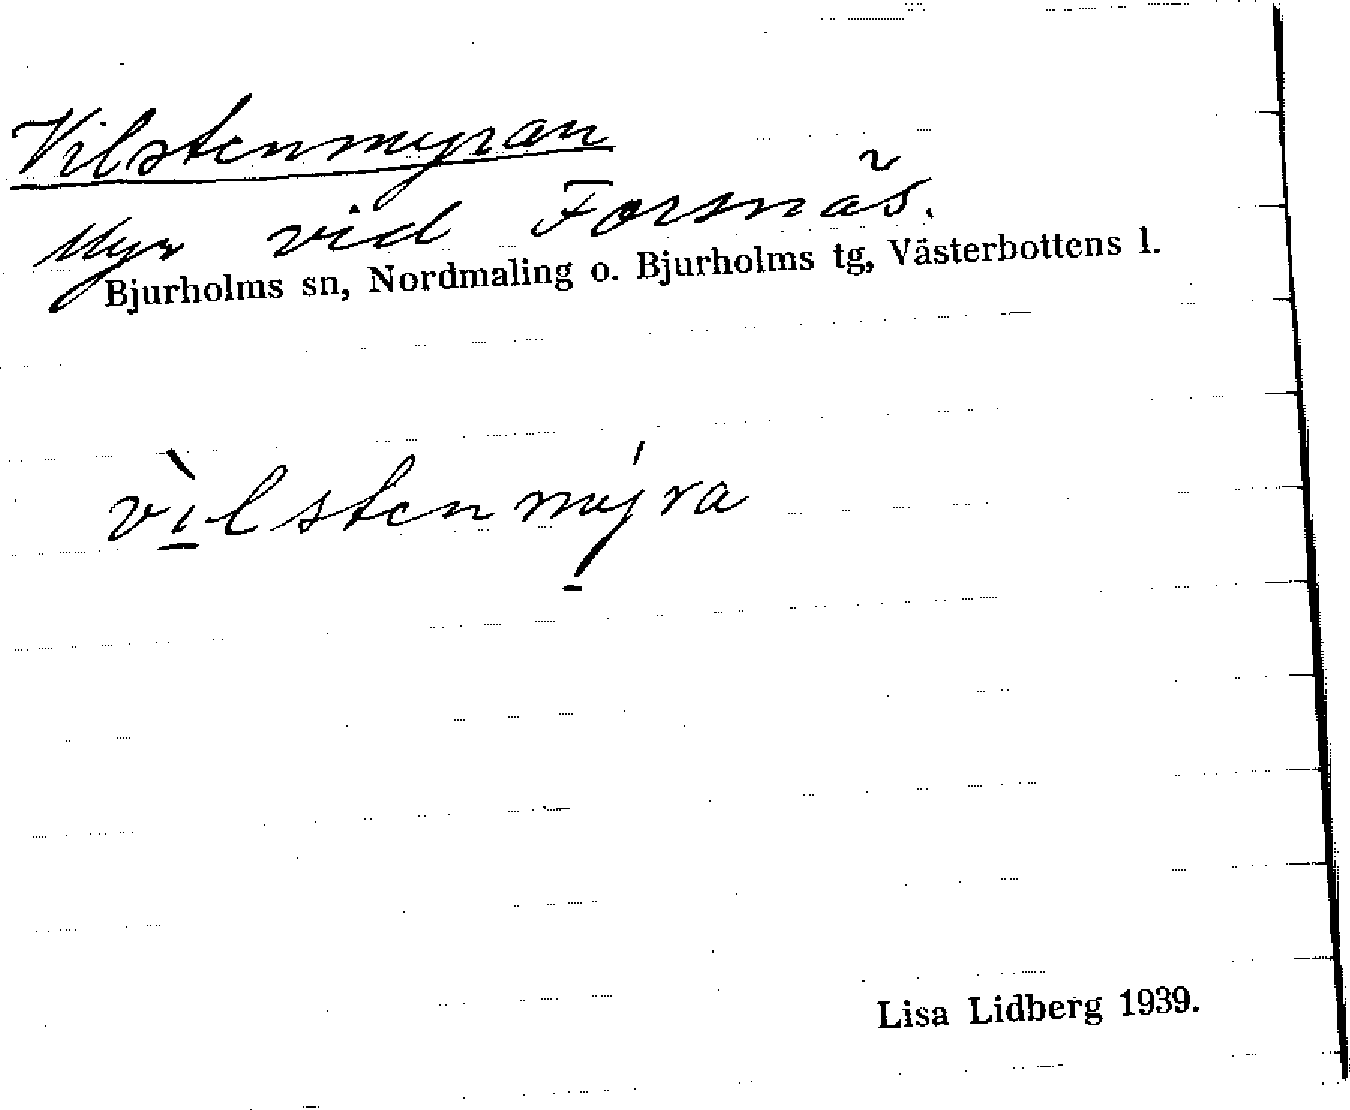 Vilstenmyran
Myr vid Forsnäs.
Bjurholms sn, Nordmaling o. Bjurholms tg, Västerbottens l.
vı̲̀lstenmý̲ra
Lisa Lidberg 1939.